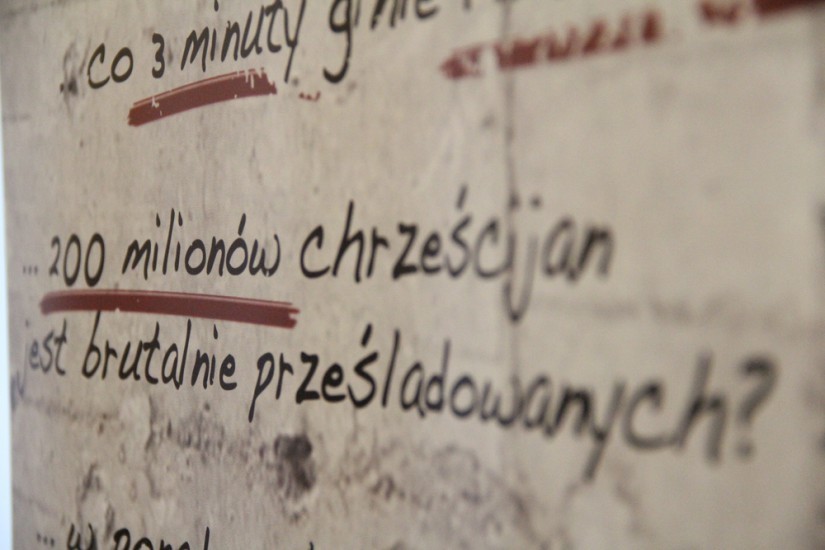 co 3 minuty ginie
... 200 milionów chrześcijan
jest brutalnie prześladowanych?
... w